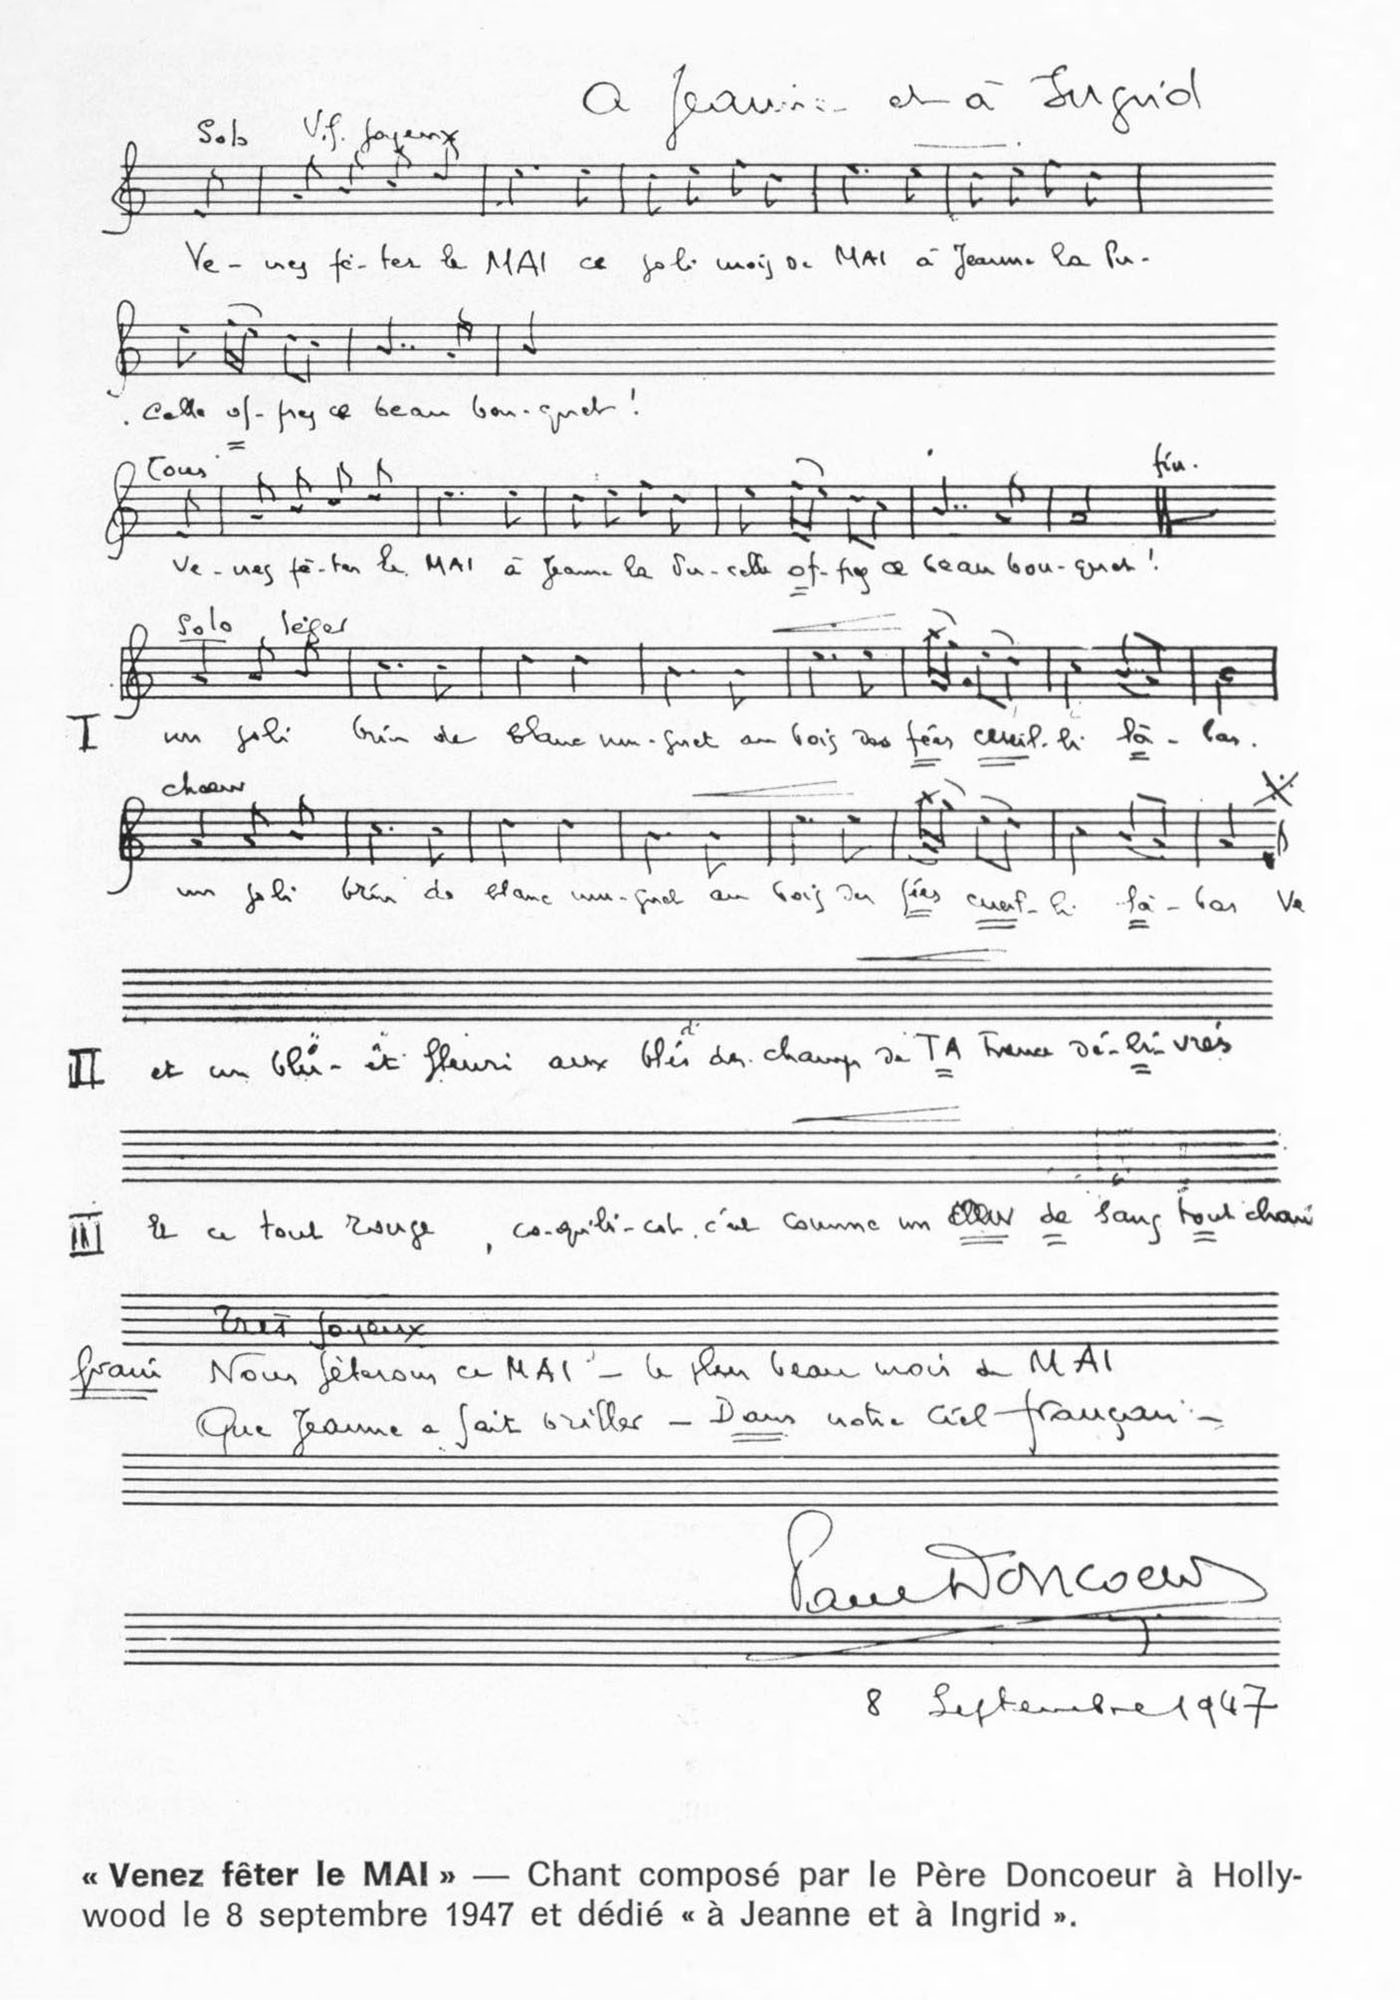 A Jeanne et à Ingrid
Solo Vif. Joyeux
Ve- nez fê- ter le MAI ce joli mois de MAI à Jeanne la Pu-
celle of- frez ce beau bou-quet !
Tous fin.
Ve- nez fê-ter le MAI à Jeanne la Pu- celle of-frez ce beau bou-quet !
Solo léger
I un joli brin de blanc mu-guet au bois des fées cueil-li là- bas.
choeur
un joli brin de blanc mu-guet au bois des fées cueil-li là- bas Ve
II et un bleu- et fleuri aux blés des champs de TA France dé-li-vrés
III Et ce tout rouge, co-queli-cot. c'est comme un de sang tout
final Très joyeux
Nous fêterons ce MAI - le plus beau mois de MAI
Que Jeanne a fait briller - Dans notre ciel français -
Paul Doncoeur
8 Septembre 1947
« Venez fêter le MAI » — Chant composé par le Père Doncoeur à Holly-
wood le 8 septembre 1947 et dédié « à Jeanne et à Ingrid ».